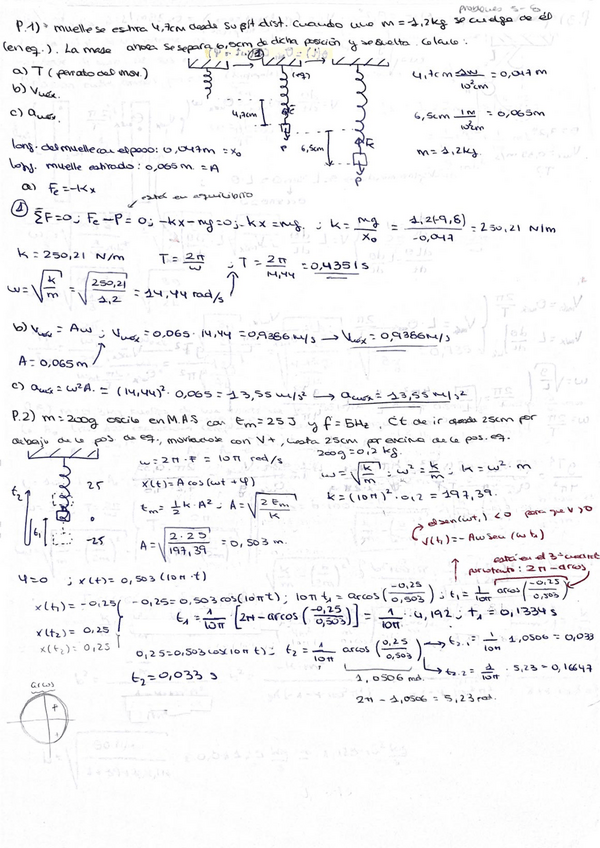 PROBLEMAS 5-6
P.1) muelle se estira 4,7cm desde su dist. Cuando uno m = 1,2kg se cuelga de él
(en eq.). La masa ahora se separa 6,5cm de dicha posición y se suelta. Calcula:
a) T (periodo del mov.)
b) Vmáx.
c) amáx.
(eq)
4,7cm
6,5cm
Fe
P
4,7cm 1m/10²cm = 0,047m
6,5cm 1m/10²cm = 0,065m
m = 1,2kg
long. del muelle con el peso: 0,047m = x₀
long. muelle estirado: 0,065m = A
a) Fe = -Kx
está en equilibrio
① ΣF=0; Fe - P = 0; -kx - mg = 0; -kx = mg. ; k = mg/x₀ = 1,2(-9,8)/-0,047 = 250,21 N/m
k = 250,21 N/m T = 2π/ω ; T = 2π/14,44 = 0,4351s
ω = √(k/m) = √(250,21/1,2) = 14,44 rad/s
b) Vmáx = Aω ; Vmáx = 0,065 · 14,44 = 0,9386 m/s → Vmáx = 0,9386 m/s
A = 0,065m
c) amáx = ω²A = (14,44)² · 0,065 = 13,55 m/s² → amáx = 13,55 m/s²
P.2) m = 200g oscila en M.A.S con Em = 25J y f = 5Hz. Ct de ir desde 25cm por
debajo de la pos. de eq., moviéndose con V+, hasta 25cm por encima de la pos. eq.
200g = 0,2 kg.
ω = 2π · F = 10π rad/s
ω = √(k/m) ; ω² = k/m ; k = ω² · m
x(t) = A cos (ωt + φ)
k = (10π)² · 0,2 = 197,39.
Em = ½ k · A² ; A = √(2Em/k)
A = √(2·25/197,39) = 0,503 m.
t₂
t₁
25
0
-25
el sen(ωt₁) < 0 para que V>0
V(t₁) = -Aω sen (ω t₁)
está en el 3er cuadrante
por lo tanto: 2π - arcos
φ = 0 ; x(t) = 0,503 (10π · t)
x(t₁) = -0,25 -0,25 = 0,503 cos(10πt); 10π t₁ = arcos(-0,25/0,503); t₁ = 1/10π arcos(-0,25/0,503)
t₁ = 1/10π · [2π - arcos(-0,25/0,503)] = 1/10π · 4,192 ; t₁ = 0,1334s
x(t₂) = 0,25
x(t₂) = 0,25
0,25 = 0,503 cos(10πt); t₂ = 1/10π arcos(0,25/0,503) → t₂.₁ = 1/10π · 1,0506 = 0,033
t₂.₂ = 1/10π · 5,23 = 0,16647
t₂ = 0,033 s
1,0506 rad.
2π - 1,0506 = 5,23 rad.
arcos
+
+